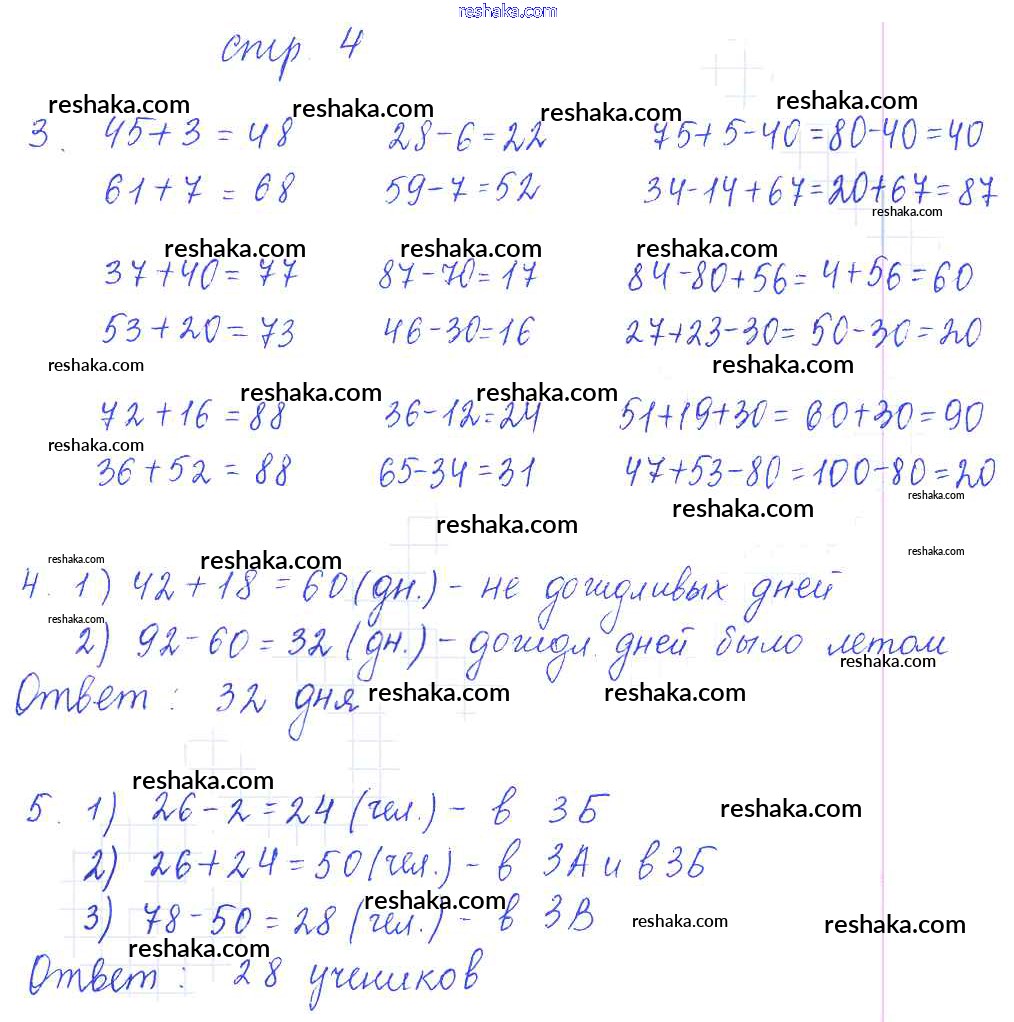 reshaka.com
стр. 4
reshaka.com reshaka.com reshaka.com reshaka.com
3. 45+3=48 28-6=22 75+5-40=80-40=40
61+7=68 59-7=52 34-14+67=20+67=87
reshaka.com
reshaka.com reshaka.com reshaka.com
37+40=77 87-70=17 84-80+56=4+56=60
53+20=73 46-30=16 27+23-30=50-30=20
reshaka.com reshaka.com
reshaka.com reshaka.com
72+16=88 36-12=24 51+19+30=60+30=90
reshaka.com
36+52=88 65-34=31 47+53-80=100-80=20
reshaka.com
reshaka.com reshaka.com
reshaka.com reshaka.com reshaka.com
4. 1) 42+18=60 (дн.) - не дождливых дней
reshaka.com
2) 92-60=32 (дн.) - дождл. дней было летом
reshaka.com
Ответ: 32 дня
reshaka.com reshaka.com
reshaka.com
5. 1) 26-2=24 (чел.) - в 3Б
reshaka.com
2) 26+24=50 (чел.) - в 3А и в 3Б
reshaka.com
3) 78-50=28 (чел.) - в 3В
reshaka.com reshaka.com
reshaka.com
Ответ: 28 учеников